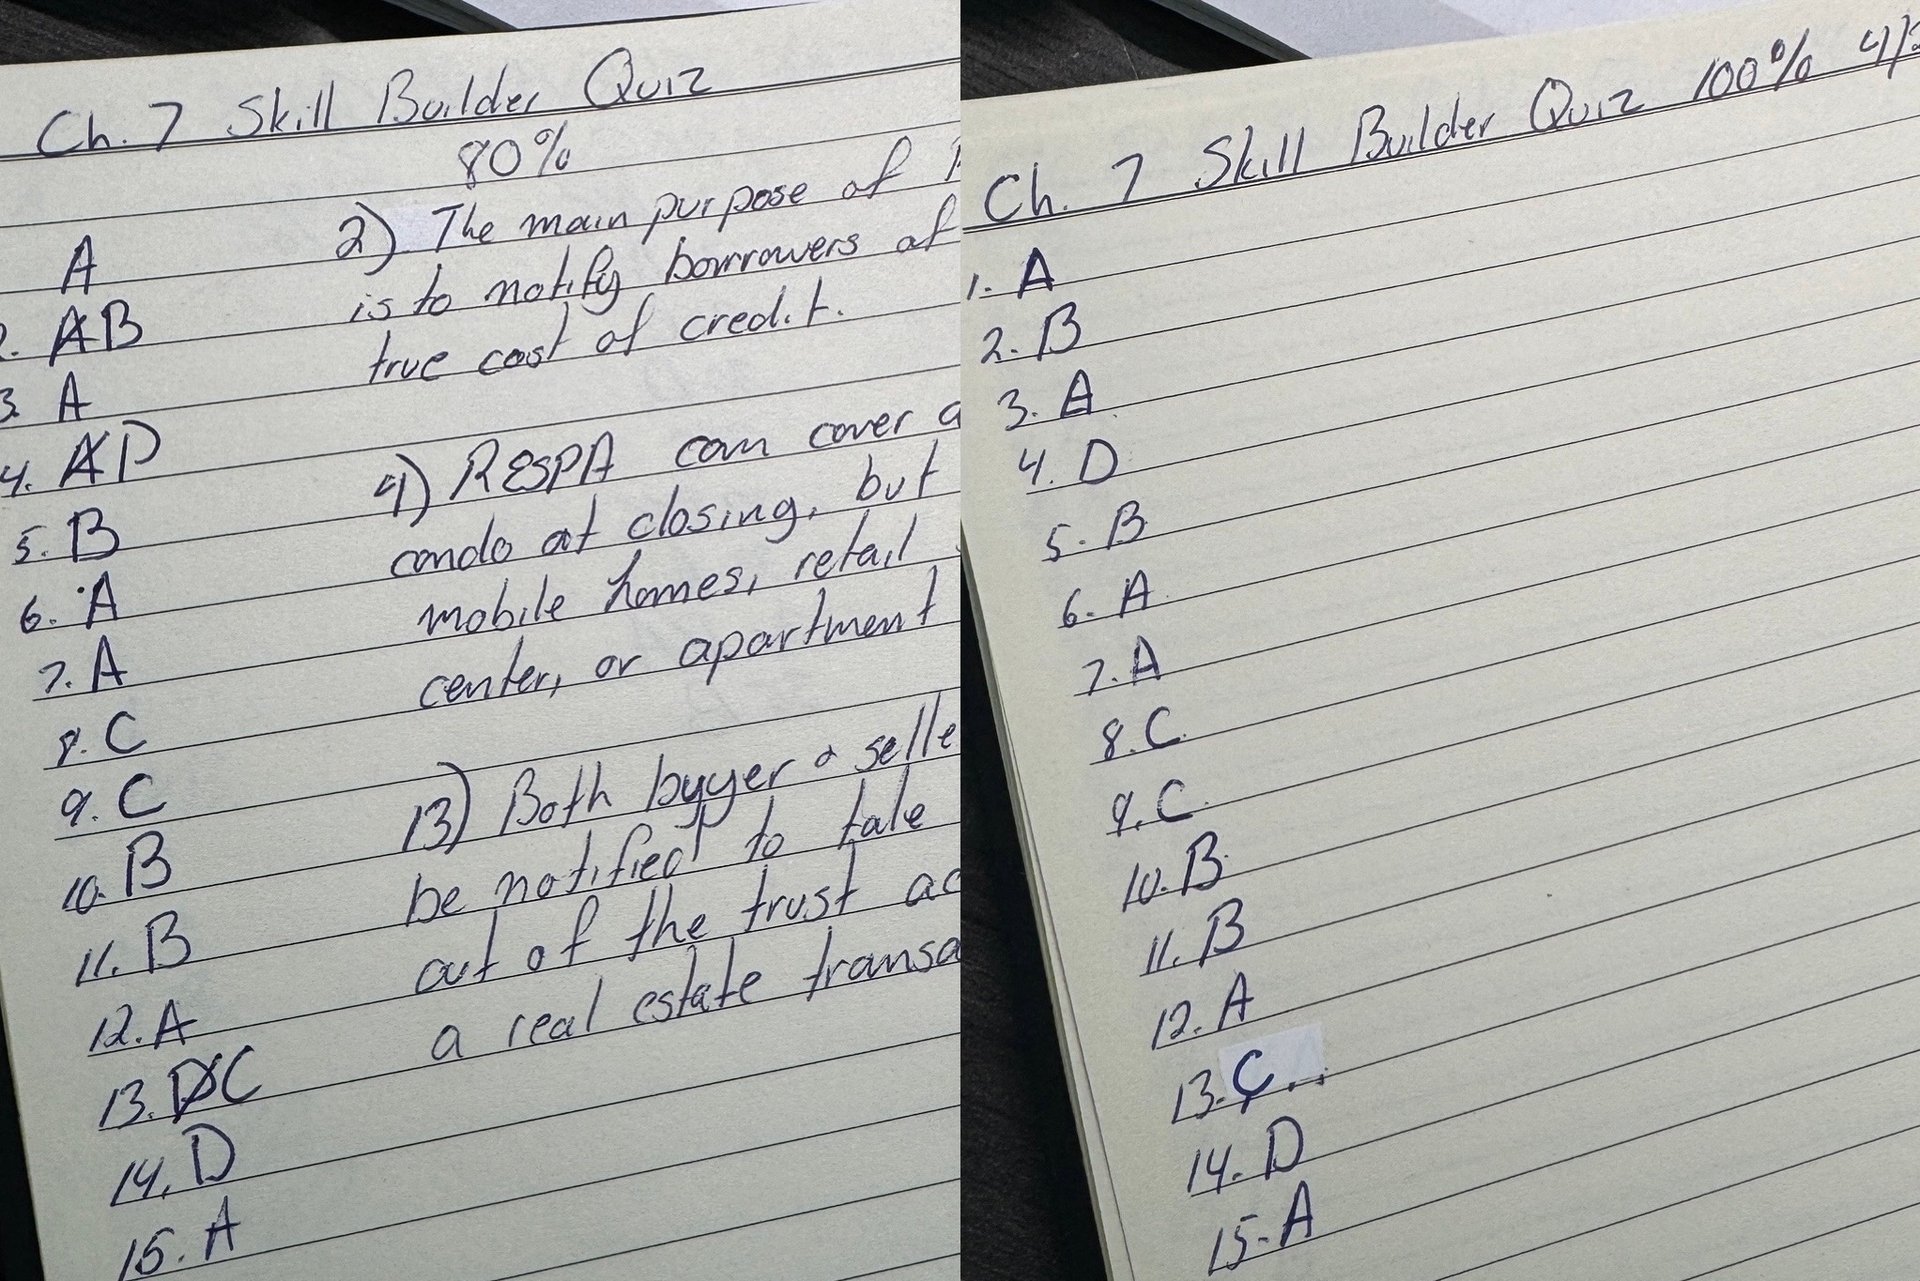 Ch. 7 Skill Builder Quiz
80%
A
2. AB
3. A
4. AD
5. B
6. A
7. A
8. C
9. C
10. B
11. B
12. A
13. DC
14. D
15. A
2) The main purpose of
is to notify borrowers of
true cost of credit.
4) RESPA can cover a
condo at closing, but
mobile homes, retail
center, or apartment
13) Both buyer & selle
be notified to take
out of the trust ac
a real estate transa
Ch. 7 Skill Builder Quiz 100% 4/
1. A
2. B
3. A
4. D
5. B
6. A
7. A
8. C
9. C
10. B
11. B
12. A
13. C
14. D
15. A